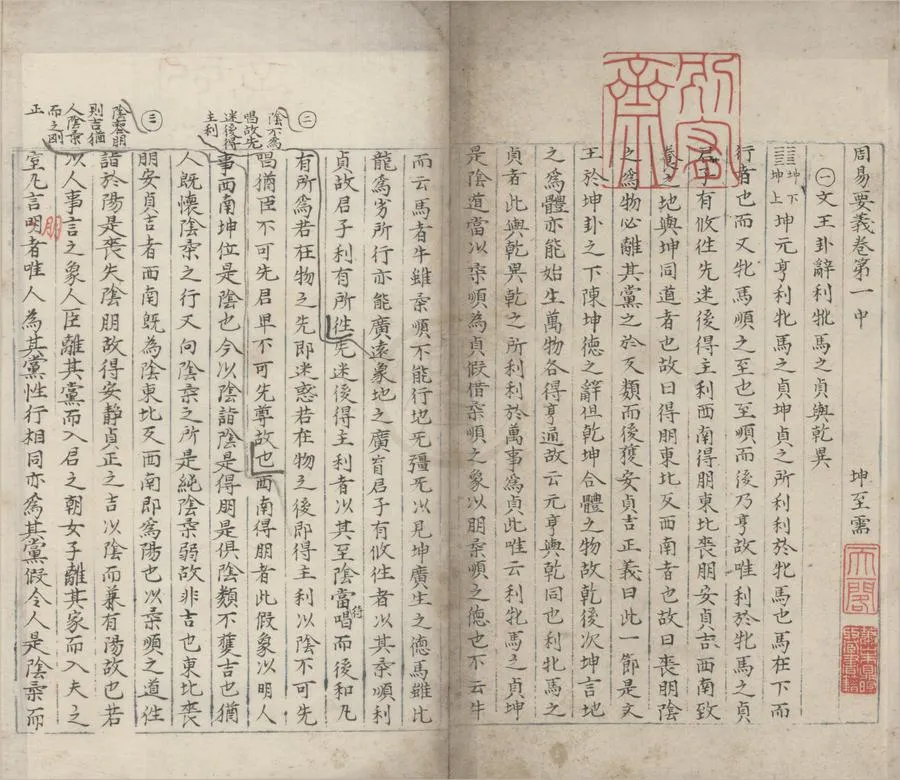 周易要義卷第一中 坤至需
㊀文王卦辭利牝馬之貞與乾異
䷁坤下坤上坤元亨利牝馬之貞坤貞之所利利於牝馬也馬在下而
行者也而又牝馬順之至也至順而後乃亨故唯利於牝馬之貞
君子有攸往先迷後得主利西南得朋東北喪朋安貞吉西南致
養之地與坤同道者也故曰得朋東北反西南者也故曰喪朋陰
之為物必離其黨之於反類而後獲安貞吉正義曰此一節是文
王於坤卦之下陳坤德之辭但乾坤合體之物故乾後次坤言地
之為體亦能始生萬物各得亨通故云元亨與乾同也利牝馬之
貞者此與乾異乾之所利利於萬事為貞此唯云利牝馬之貞坤
是陰道當以柔順為貞假借柔順之象以明柔順之德也不云牛
別宥齋
天一閣
而云馬者牛雖柔順不能行地无彊无以見坤廣生之德馬雖比
龍為劣所行亦能廣遠象地之廣育君子有攸往者以其柔順利
貞故君子利有所往先迷後得主利者以其至陰當待唱而後和凡
㊁
陰不為
唱故先
迷後得
主利
有所為若在物之先即迷惑若在物之後即得主利以陰不可先
唱猶臣不可先君卑不可先尊故也西南得朋者此假象以明人
事西南坤位是陰也今以陰詣陰是得朋是俱陰類不獲吉也猶
人既懷陰柔之行又向陰柔之所是純陰柔弱故非吉也東北喪
㊂
陰喪朋
則吉猶
人陰柔
而之剛
正
朋安貞吉者西南既為陰東北反西南即為陽也以柔順之道往
詣於陽是喪失陰朋故得安靜貞正之吉以陰而兼有陽故也若
以人事言之象人臣離其黨而入君之朝女子離其家而入夫之
室凡言明者唯人為其黨性行相同亦為其黨假令人是陰柔而
朋